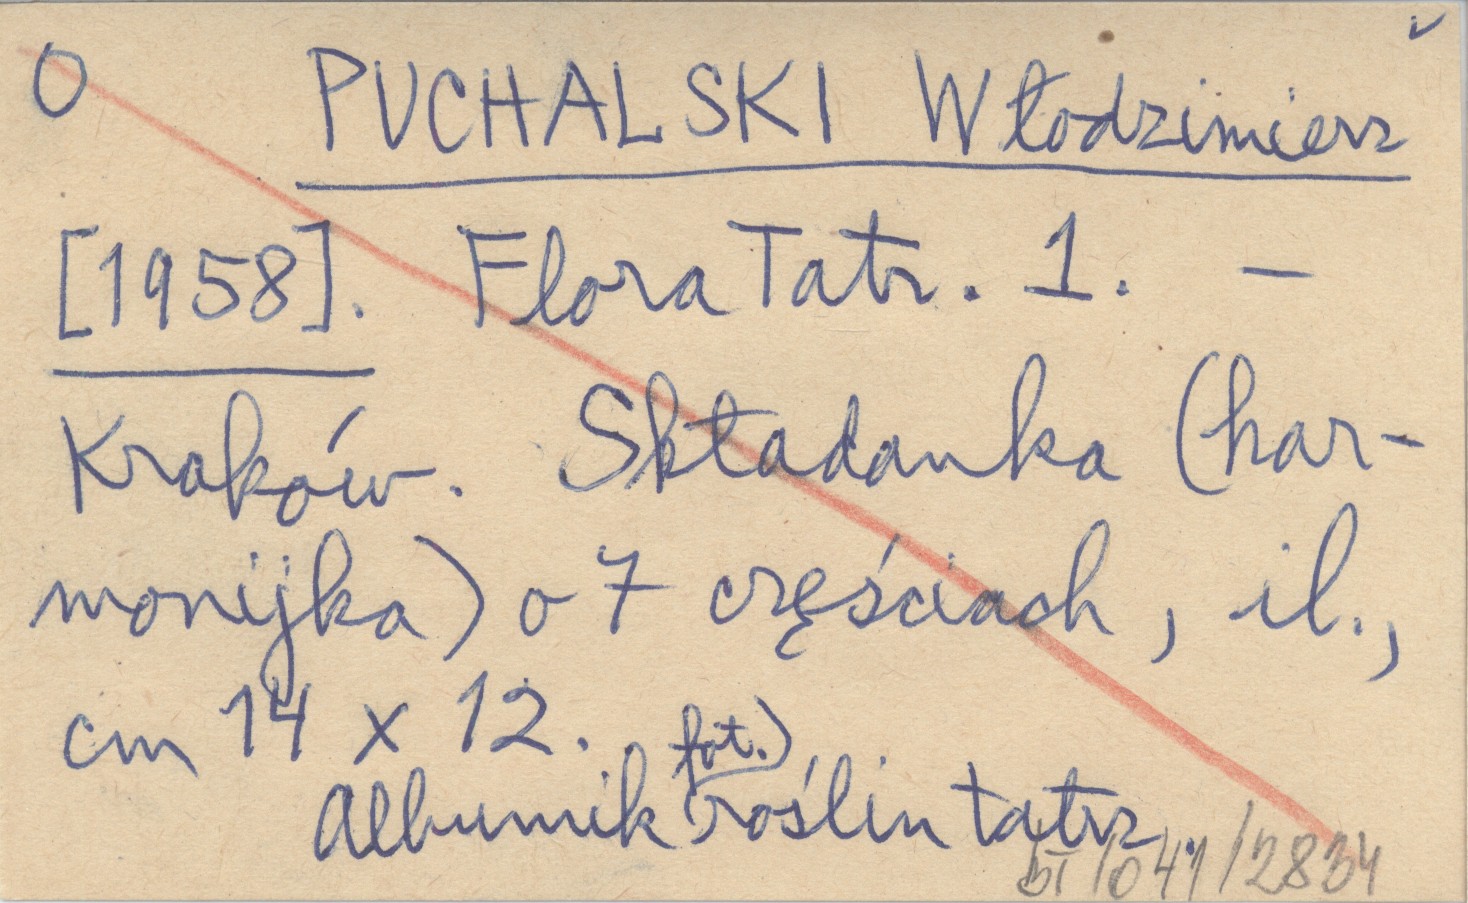 O PUCHALSKI Włodzimierz
[1958]. Flora Tatr. 1. –
Kraków. Składanka (har-
monijka) o 7 częściach, il.,
cm 14 x 12.
fot.)
Albumik roślin tatrz.
BT/041/2834